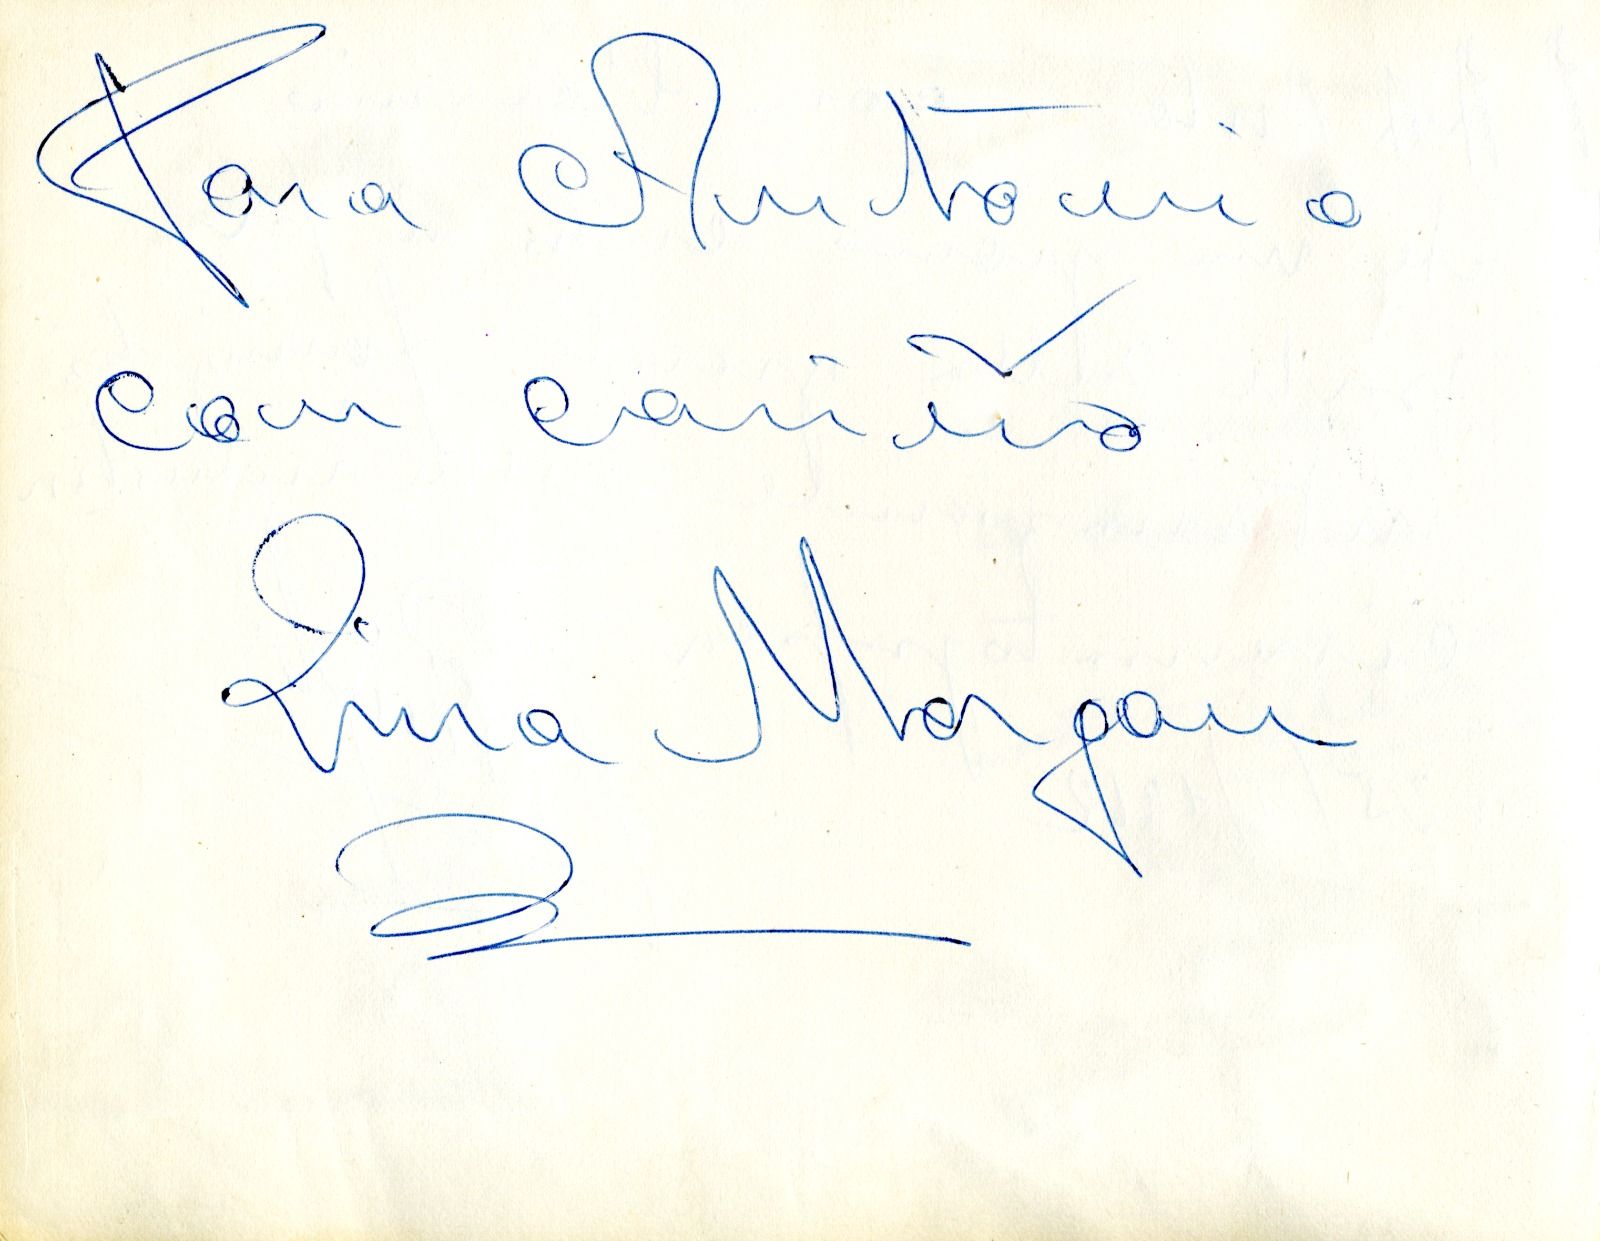 Para Antonio
con cariño
Lina Morgan